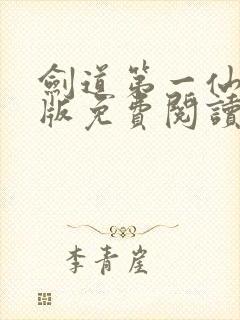 劍道第一仙
版免費閱讀
李青崖